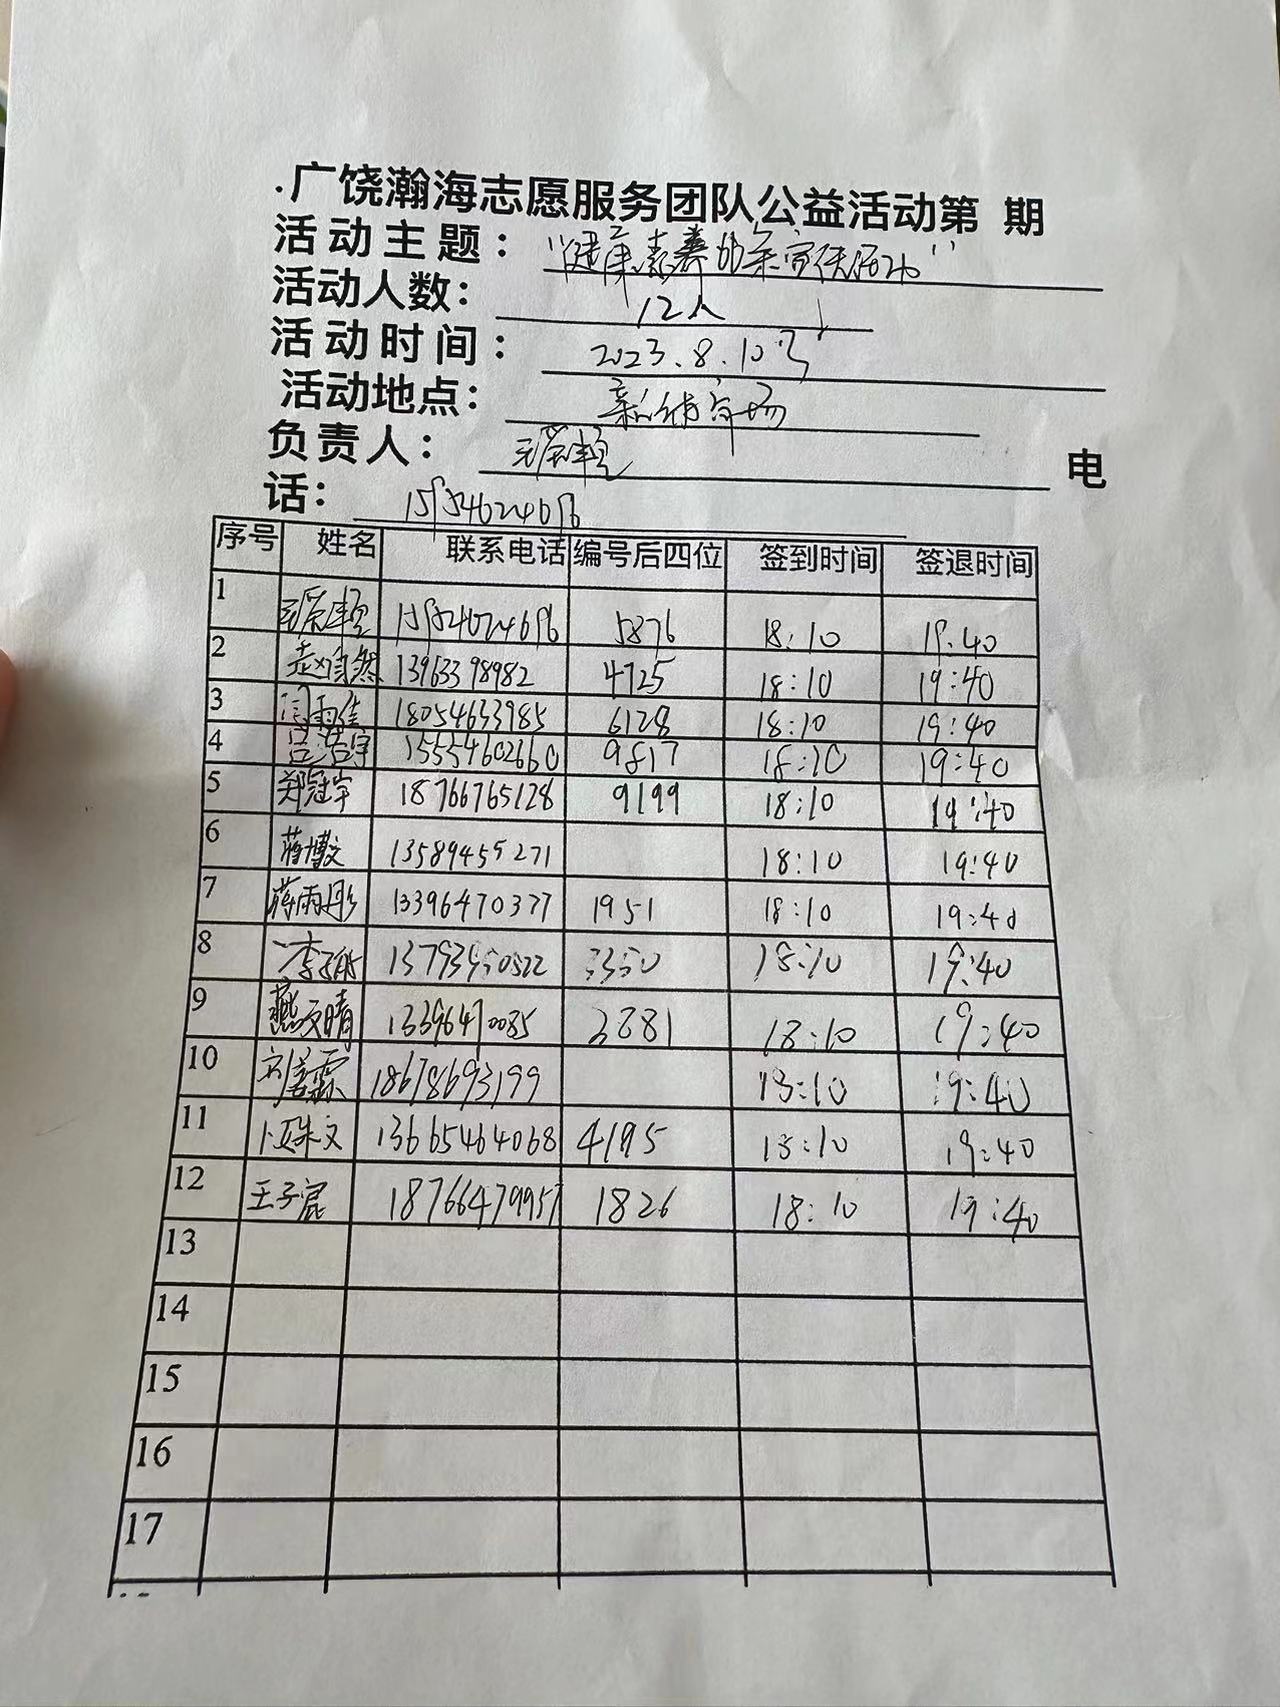 .广饶瀚海志愿服务团队公益活动第 期
活动主题：“健康素养66条宣传活动”
活动人数： 12人
活动时间： 2023.8.10号
活动地点： 市场
负责人： 电
话：
序号 姓名 联系电话 编号后四位 签到时间 签退时间
1 5876 18:10 19:40
2 赵自然 13963398982 4725 18:10 19:40
3 闫雨佳 18054633985 6128 18:10 19:40
4 吕浩宇 15554602660 9817 18:10 19:40
5 郑冠宇 18766765128 9199 18:10 19:40
6 蒋博文 13589455271 18:10 19:40
7 蒋雨彤 13396470377 1951 18:10 19:40
8 李 3350 18:10 19:40
9 燕 晴 13396470085 2881 18:10 19:40
10 刘 霖 18678693199 18:10 19:40
11 文 13665464068 4195 18:10 19:40
12 王子宸 18766479957 1826 18:10 19:40
13
14
15
16
17